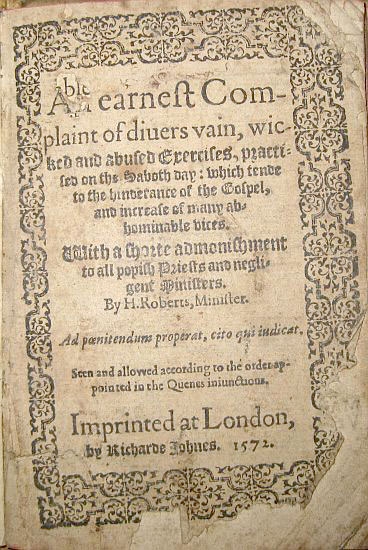 ble
An earnest Com-
plaint of diuers vain, wic-
ked and abused Exercises, practi-
sed on the Saboth day: which tende
to the hinderance of the Gospel,
and increase of many ab-
hominable vices.
With a shorte admonishment
to all popish Priests and negli-
gent Ministers.
By H. Roberts, Minister.
Ad pœnitendum properat, cito qui iudicat.
Seen and allowed according to the order ap-
pointed in the Quenes iniunctions.
Imprinted at London,
by Richarde Johnes. 1572.